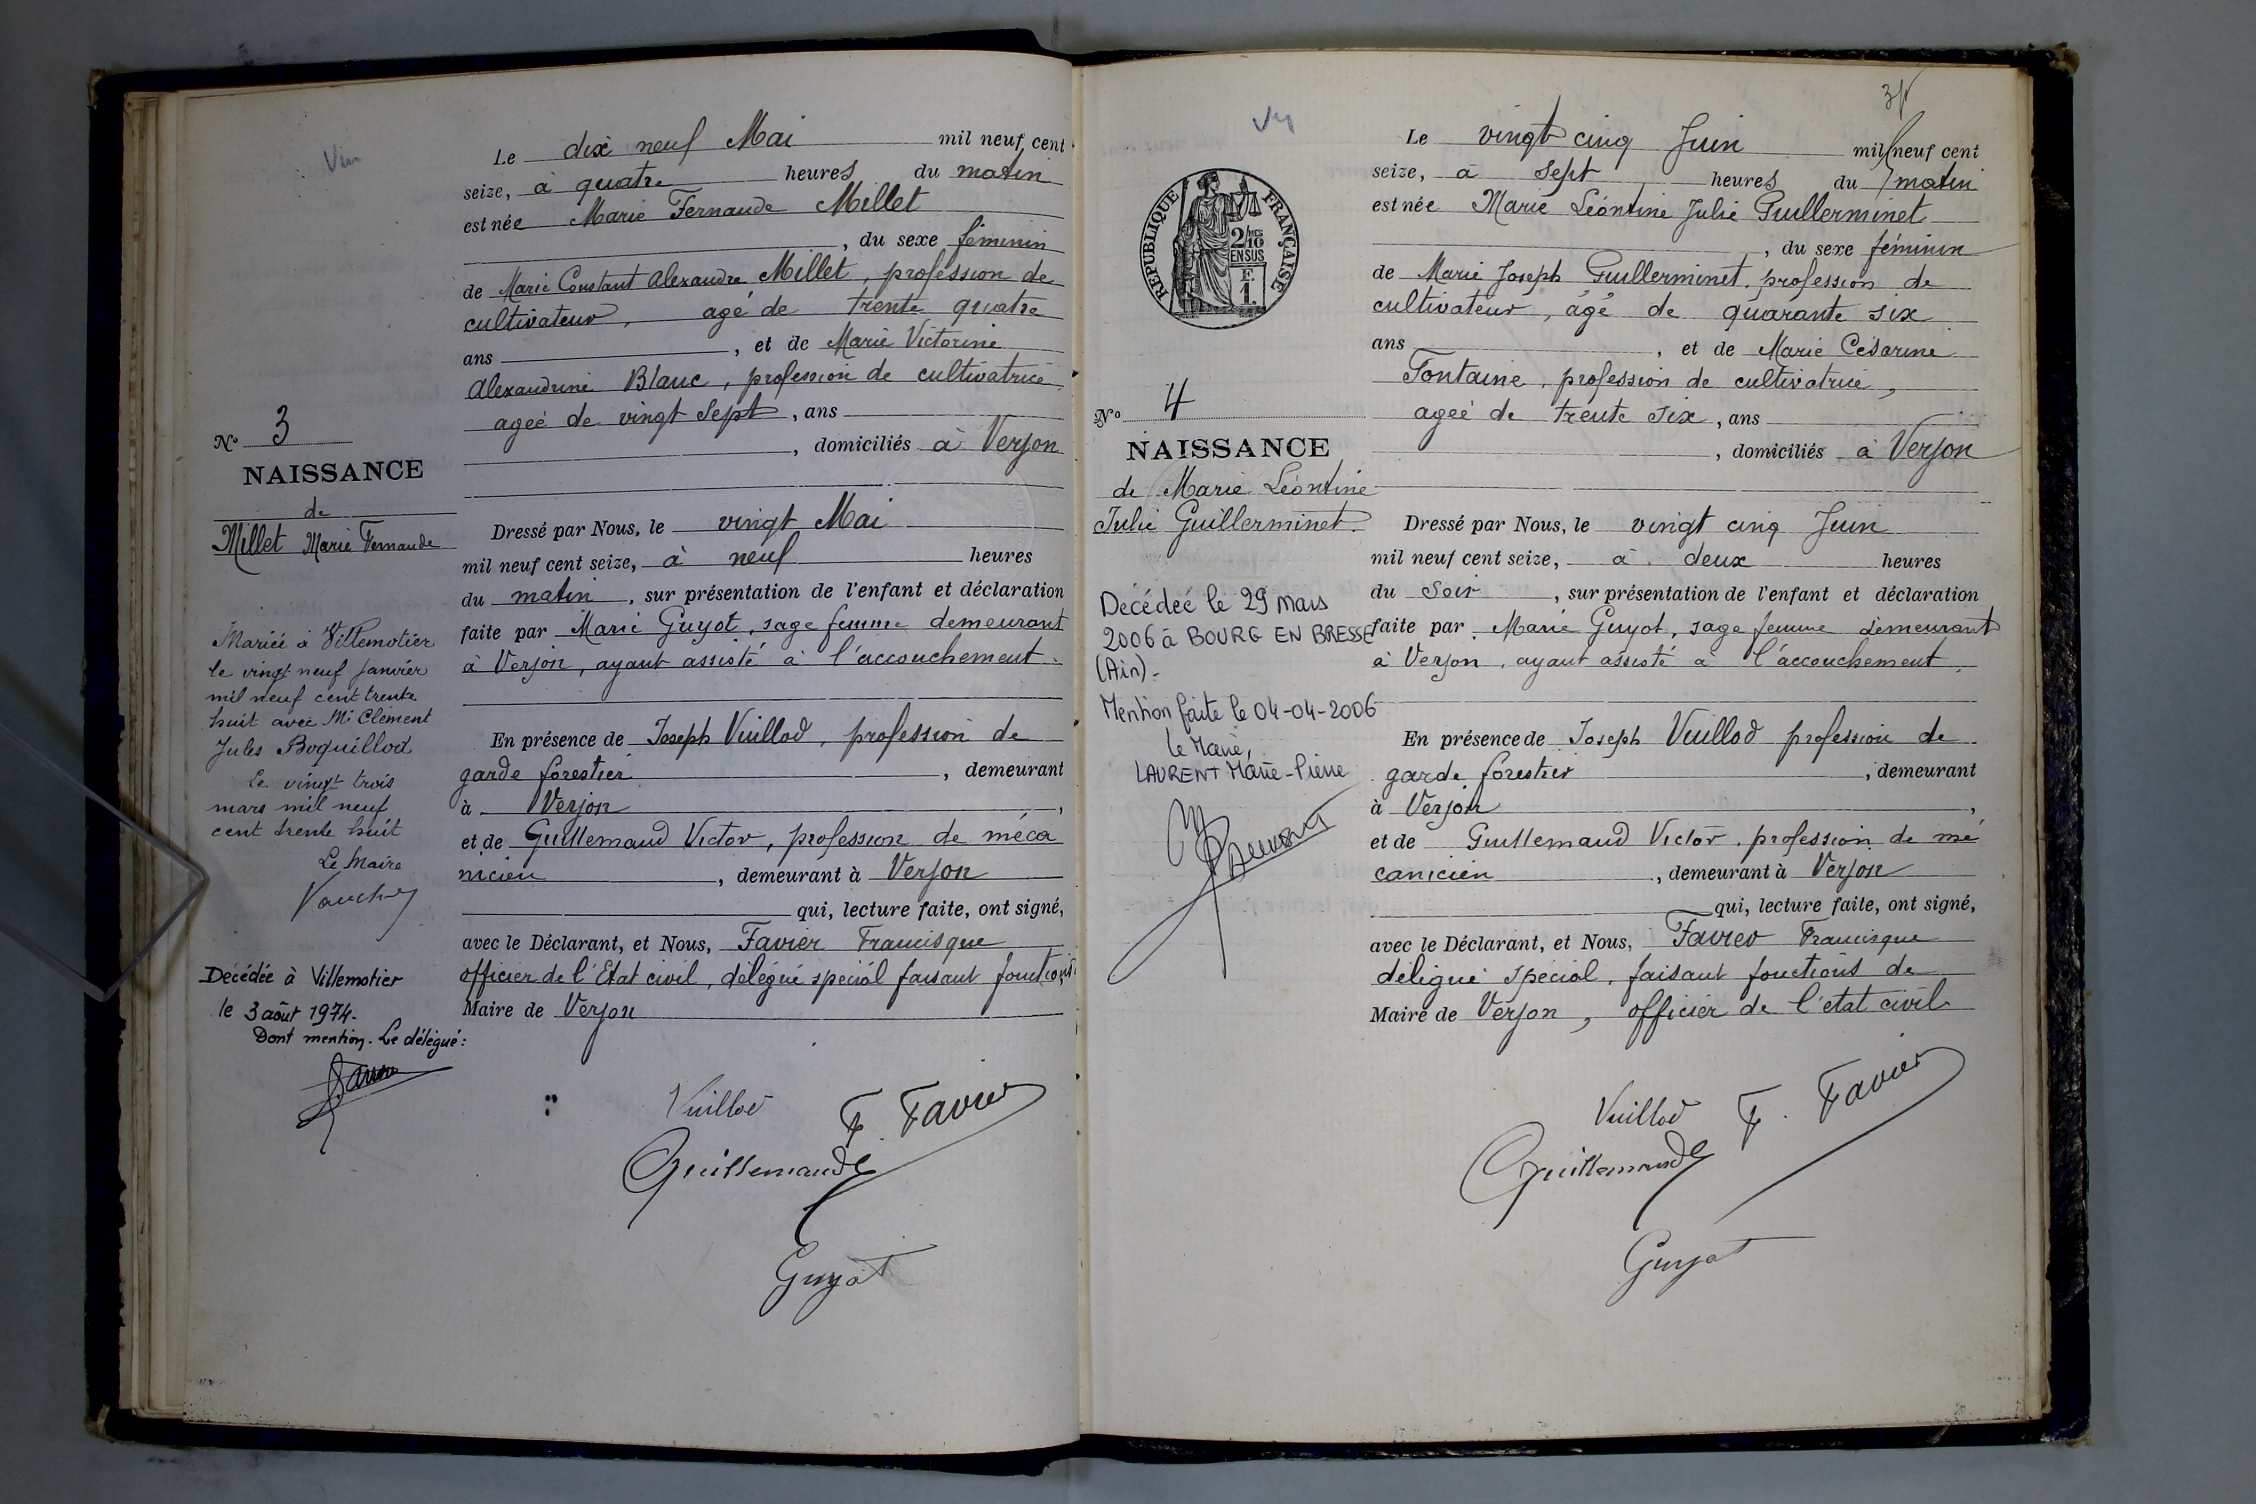 Le dix neuf Mai mil neuf cent
seize, à quatre heures du matin
est née Marie Fernande Millet
, du sexe féminin
de Marie Constant Alexandre Millet, profession de
cultivateur, agé de trente quatre
ans , et de Marie Victorine
Alexandrine Blanc, profession de cultivatrice
ageé de vingt sept, ans
, domiciliés à Verjon
No 3
NAISSANCE
de
Millet Marie Fernande
Dressé par Nous, le vingt Mai
mil neuf cent seize, à neuf heures
du matin, sur présentation de l'enfant et déclaration
faite par Marie Guyot, sage femme demeurant
à Verjon, ayant assisté à l'accouchement.
En présence de Joseph Vuillod, profession de
garde forestier , demeurant
à Verjon ,
et de Guillemaud Victor, profession de méca
nicien , demeurant à Verjon
qui, lecture faite, ont signé,
avec le Déclarant, et Nous, Favier Francisque
officier de l'Etat civil, délégué spécial faisant fonctions
Maire de Verjon
Mariée à Villemotier
le vingt neuf janvier
mil neuf cent trente
huit avec Mr Clément
Jules Boquillod
Le vingt trois
mars mil neuf
cent trente huit
Le Maire
Décédée à Villemotier
le 3 août 1974.
Dont mention. Le délégué:
Vuillod
F. Favier
Guillemaud
Guyot
Le vingt cinq Juin mil neuf cent
seize, à sept heures du matin
est née Marie Léontine Julie Guillerminet
, du sexe féminin
de Marie Joseph Guillerminet, profession de
cultivateur, âgé de quarante six
ans , et de Marie Césarine
Fontaine, profession de cultivatrice,
ageé de trente six, ans
, domiciliés à Verjon
RÉPUBLIQUE FRANÇAISE
2/10 MES
EN SUS
F.
1.
No 4
NAISSANCE
de Marie Léontine
Julie Guillerminet.
Dressé par Nous, le vingt cinq Juin
mil neuf cent seize, à deux heures
du soir , sur présentation de l'enfant et déclaration
faite par Marie Guyot, sage femme demeurant
à Verjon, ayant assisté à l'accouchement.
En présence de Joseph Vuillod profession de
garde forestier , demeurant
à Verjon ,
et de Guillemaud Victor, profession de mé
canicien , demeurant à Verjon
qui, lecture faite, ont signé,
avec le Déclarant, et Nous, Favier Francisque
délégué spécial, faisant fonctions de
Maire de Verjon, officier de l'état civil
Décédée le 29 mars
2006 à BOURG EN BRESSE
(Ain).
Mention faite le 04-04-2006
Le Maire,
LAURENT Marie-Pierre
Vuillod
F. Favier
Guillemaud
Guyot